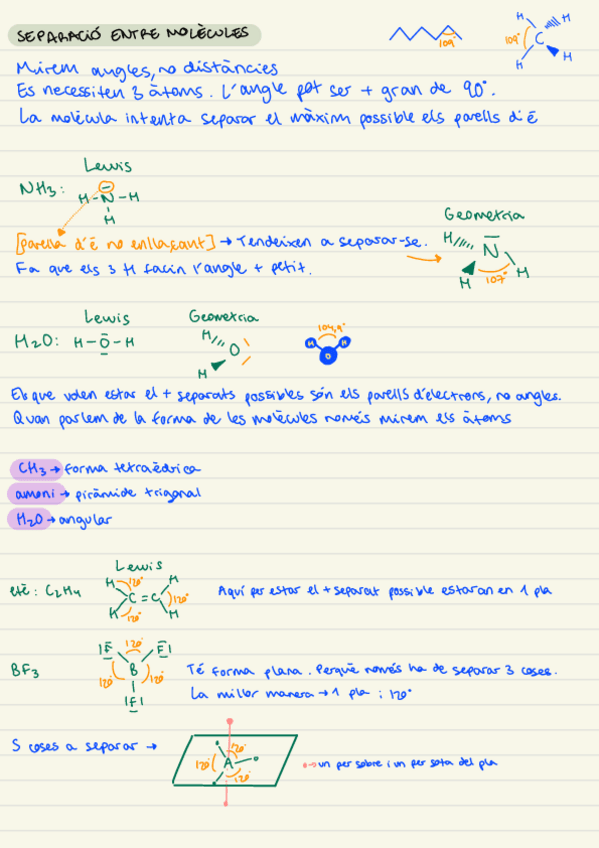 SEPARACIÓ ENTRE MOLÈCULES
109°
H
H
109°
C
H
H
Mirem angles, no distàncies
Es necessiten 3 àtoms. L'angle pot ser + gran de 90°.
La molècula intenta separar el màxim possible els parells d'e
Lewis
NH3:
H-N-H
H
[parella d'e no enllaçant] → Tendeixen a separar-se.
Fa que els 3 H facin l'angle + petit.
Geometria
H N
H H
107°
Lewis
Geometria
H2O: H-O-H
H
O
H
104,9°
H H
O
Els que volen estar el + separats possibles són els parells d'electrons, no angles.
Quan parlem de la forma de les molècules només mirem els àtoms
CH3 → forma tetraèdrica
amoni → piràmide trigonal
H2O → angular
Lewis
etè: C2H4
H 120° H
C = C 120°
H 120° H
Aquí per estar el + separat possible estaran en 1 pla
BF3
|F 120° F|
B
120° 120°
|F|
Té forma plana. Perquè només ha de separar 3 coses.
La millor manera → 1 pla i 120°
5 coses a separar →
120°
120° A
120°
→ un per sobre i un per sota del pla